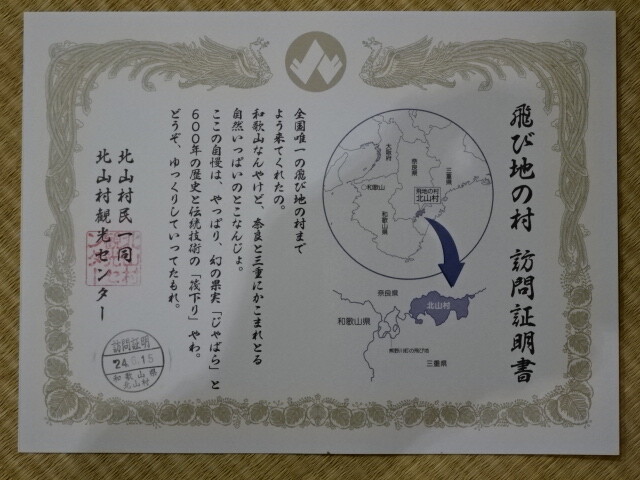 飛び地の村 訪問証明書
大阪府
奈良県
三重県
○和歌山
飛地の村
北山村
和歌山県
奈良県
北山村
和歌山県
三重県
全国唯一の飛び地の村まで
よう来てくれたの。
和歌山なんやけど、奈良と三重にかこまれとる
自然いっぱいのとこなんじょ。
ここの自慢は、やっぱり、幻の果実「じゃばら」と
600年の歴史と伝統技術の「筏下り」やわ。
どうぞ、ゆっくりしていってたもれ。
北山村民一同
北山村観光センター
訪問証明
和歌山県
北山村